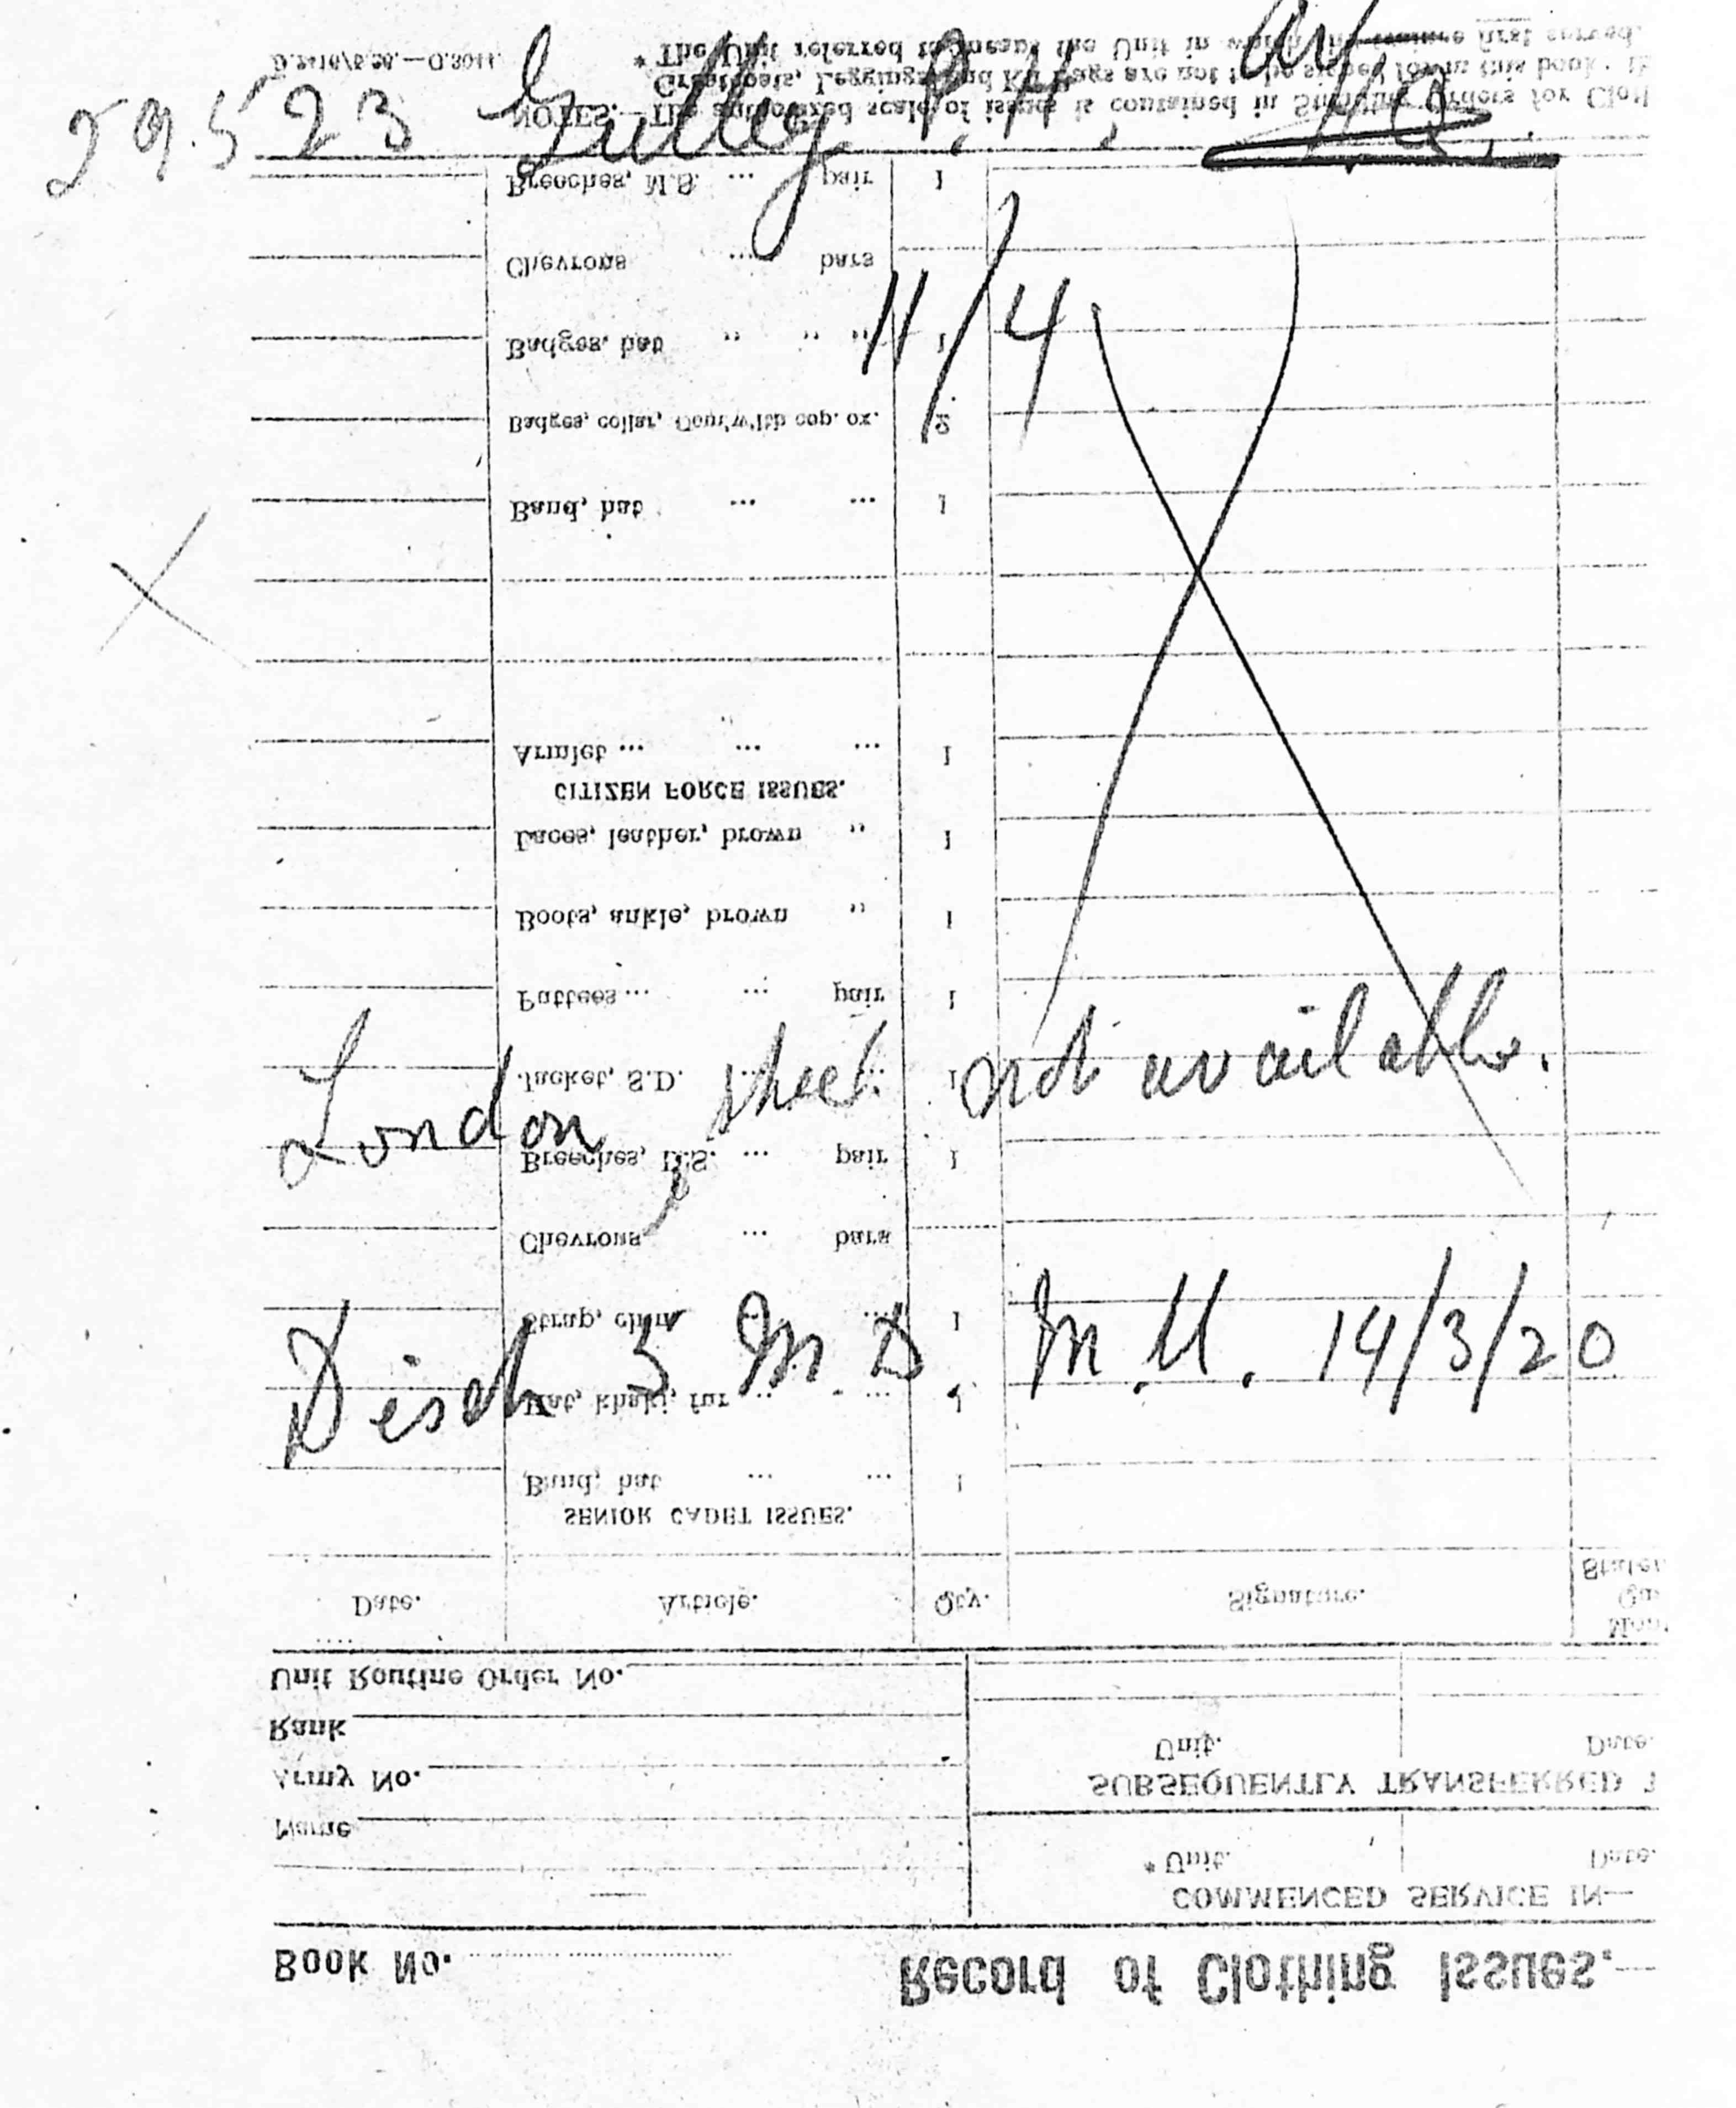 29523 Gulley
11/4
London sheet not available.
Disch 3 M D 14/3/20
Record of Clothing Issues.—
Book No.
COMMENCED SERVICE IN—
* Unit. Date.
Name
SUBSEQUENTLY TRANSFERRED
Army No.
Unit. Date.
Rank
Unit Routine Order No.
Date. Article. Qty. Signature.
SENIOR CADET ISSUES.
Band, hat ... ... 1
Hat, khaki, fur ... ... 1
Strap, chin ... 1
Chevrons ... bars
Breeches, D.S. ... pair 1
Jacket, S.D. ... ... 1
Puttees ... ... pair 1
Boots, ankle, brown " 1
Laces, leather, brown " 1
CITIZEN FORCE ISSUES.
Armlet ... ... ... 1
Band, hat ... ... 1
Badges, collar, Cout'w'lth cop. ox. 2
Badges, hat " " " 1
Chevrons ... bars
Breeches, M.S. ... pair 1
NOTES.—The authorized scale of issues is contained in Standing Orders for
Greatcoats, Leggings and Kit Bags are not to be signed for in this book;
* The Unit referred to means the Unit in which the trainee first served.